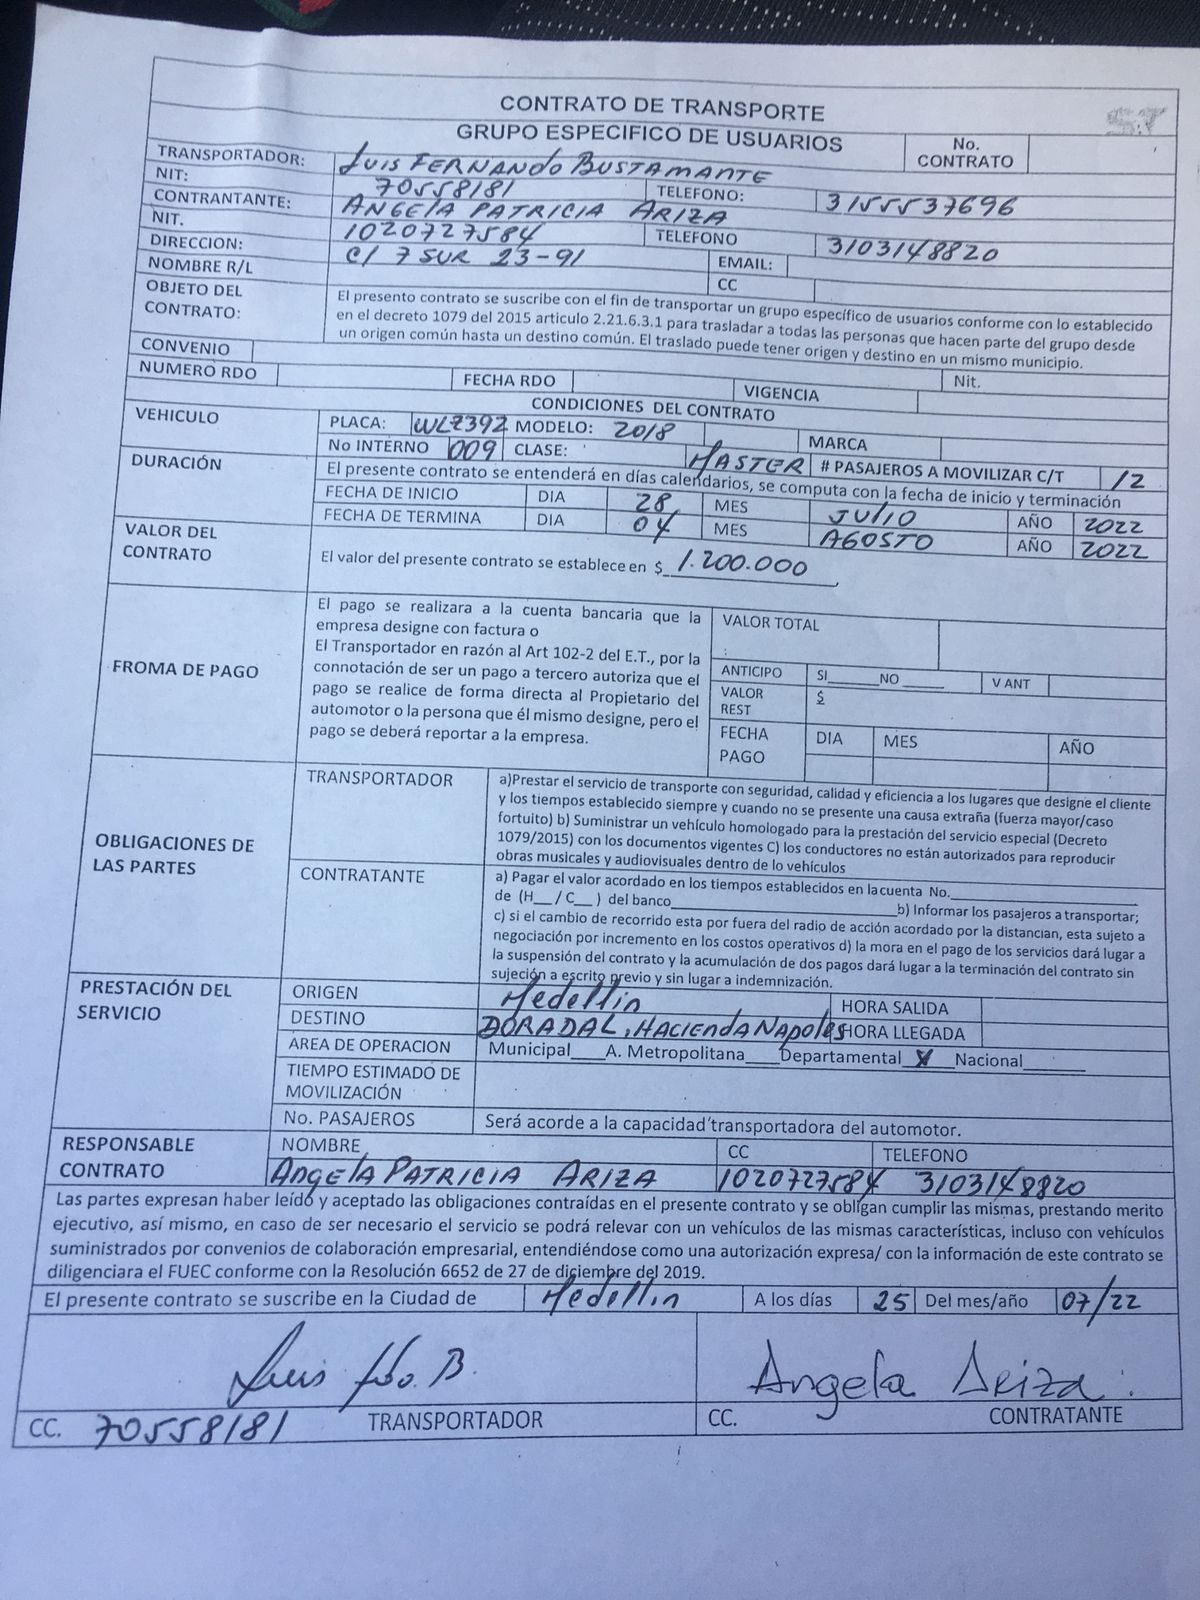 CONTRATO DE TRANSPORTE
GRUPO ESPECIFICO DE USUARIOS
No. CONTRATO
TRANSPORTADOR: Luis FERNANDO BUSTAMANTE
NIT: 70558181 TELEFONO: 3155537696
CONTRANTANTE: ANGELA PATRICIA ARIZA
NIT. 1020727584 TELEFONO 3103148820
DIRECCION: C/ 7 SUR 23-91 EMAIL:
NOMBRE R/L CC
OBJETO DEL CONTRATO:
El presento contrato se suscribe con el fin de transportar un grupo específico de usuarios conforme con lo establecido
en el decreto 1079 del 2015 articulo 2.21.6.3.1 para trasladar a todas las personas que hacen parte del grupo desde
un origen común hasta un destino común. El traslado puede tener origen y destino en un mismo municipio.
CONVENIO Nit.
NUMERO RDO FECHA RDO VIGENCIA
CONDICIONES DEL CONTRATO
VEHICULO PLACA: WLZ392 MODELO: 2018 MARCA
No INTERNO 009 CLASE: MASTER # PASAJEROS A MOVILIZAR C/T 12
DURACIÓN El presente contrato se entenderá en días calendarios, se computa con la fecha de inicio y terminación
FECHA DE INICIO DIA 28 MES JULIO AÑO 2022
FECHA DE TERMINA DIA 04 MES AGOSTO AÑO 2022
VALOR DEL CONTRATO El valor del presente contrato se establece en $ 1.200.000
FROMA DE PAGO
El pago se realizara a la cuenta bancaria que la
empresa designe con factura o
El Transportador en razón al Art 102-2 del E.T., por la
connotación de ser un pago a tercero autoriza que el
pago se realice de forma directa al Propietario del
automotor o la persona que él mismo designe, pero el
pago se deberá reportar a la empresa.
VALOR TOTAL
:
ANTICIPO SI______NO ______ V ANT
VALOR REST $
FECHA PAGO DIA MES AÑO
OBLIGACIONES DE LAS PARTES
TRANSPORTADOR
a)Prestar el servicio de transporte con seguridad, calidad y eficiencia a los lugares que designe el cliente
y los tiempos establecido siempre y cuando no se presente una causa extraña (fuerza mayor/caso
fortuito) b) Suministrar un vehículo homologado para la prestación del servicio especial (Decreto
1079/2015) con los documentos vigentes C) los conductores no están autorizados para reproducir
obras musicales y audiovisuales dentro de lo vehículos
CONTRATANTE
a) Pagar el valor acordado en los tiempos establecidos en la cuenta No.____________________
de (H__ / C__ ) del banco________________________b) Informar los pasajeros a transportar;
c) si el cambio de recorrido esta por fuera del radio de acción acordado por la distancian, esta sujeto a
negociación por incremento en los costos operativos d) la mora en el pago de los servicios dará lugar a
la suspensión del contrato y la acumulación de dos pagos dará lugar a la terminación del contrato sin
sujeción a escrito previo y sin lugar a indemnización.
PRESTACIÓN DEL SERVICIO
ORIGEN Medellin HORA SALIDA
DESTINO DORADAL, HACIENDA Napoles HORA LLEGADA
ÁREA DE OPERACION Municipal____A. Metropolitana____Departamental_X__Nacional_______
TIEMPO ESTIMADO DE MOVILIZACIÓN
No. PASAJEROS Será acorde a la capacidad transportadora del automotor.
RESPONSABLE CONTRATO
NOMBRE CC TELEFONO
ANGELA PATRICIA ARIZA 1020727584 3103148820
Las partes expresan haber leído y aceptado las obligaciones contraídas en el presente contrato y se obligan cumplir las mismas, prestando merito
ejecutivo, así mismo, en caso de ser necesario el servicio se podrá relevar con un vehículos de las mismas características, incluso con vehículos
suministrados por convenios de colaboración empresarial, entendiéndose como una autorización expresa/ con la información de este contrato se
diligenciara el FUEC conforme con la Resolución 6652 de 27 de diciembre del 2019.
El presente contrato se suscribe en la Ciudad de Medellin A los días 25 Del mes/año 07/22
Luis fdo. B. Angela Ariza
CC. 70558181 TRANSPORTADOR CC. CONTRATANTE